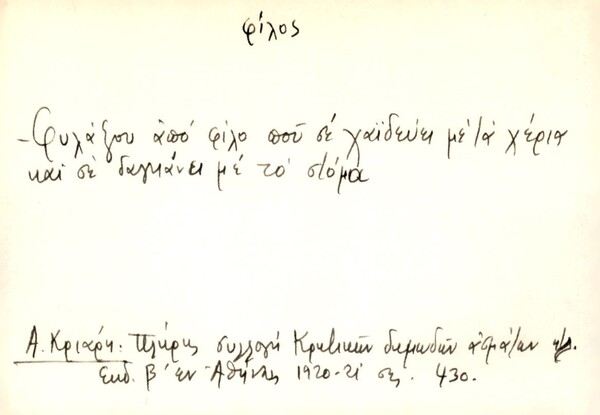 φίλος
- Φυλάξου ἀπό φίλο ποῦ σέ χαϊδεύει μέ τά χέρια
καί σέ δαγκάνει μέ τό στόμα
Α. Κριάρη: Πλήρης συλλογή Κρητικῶν δημωδῶν ἀσμάτων
Ἐκδ. β' ἐν Ἀθήναις 1920-21 σς. 430.